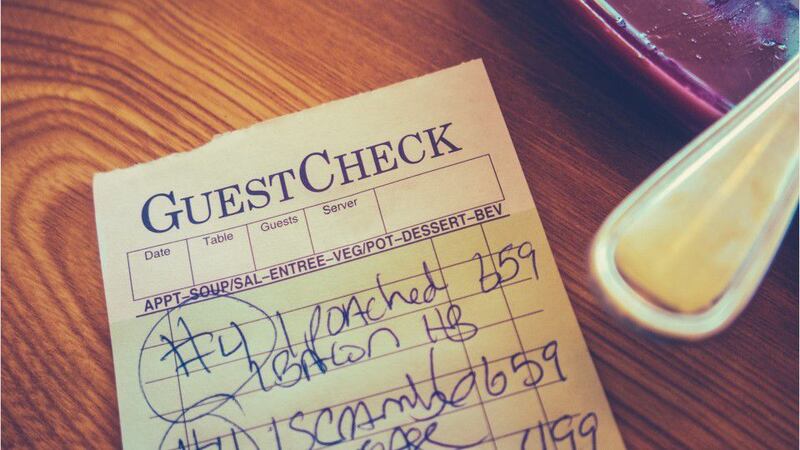 GUESTCHECK
Date Table Guests Server
APPT-SOUP/SAL-ENTREE-VEG/POT-DESSERT-BEV
#4 1 POACHED 659
BACON HB
#4 1 SCRAMBLED 659
499